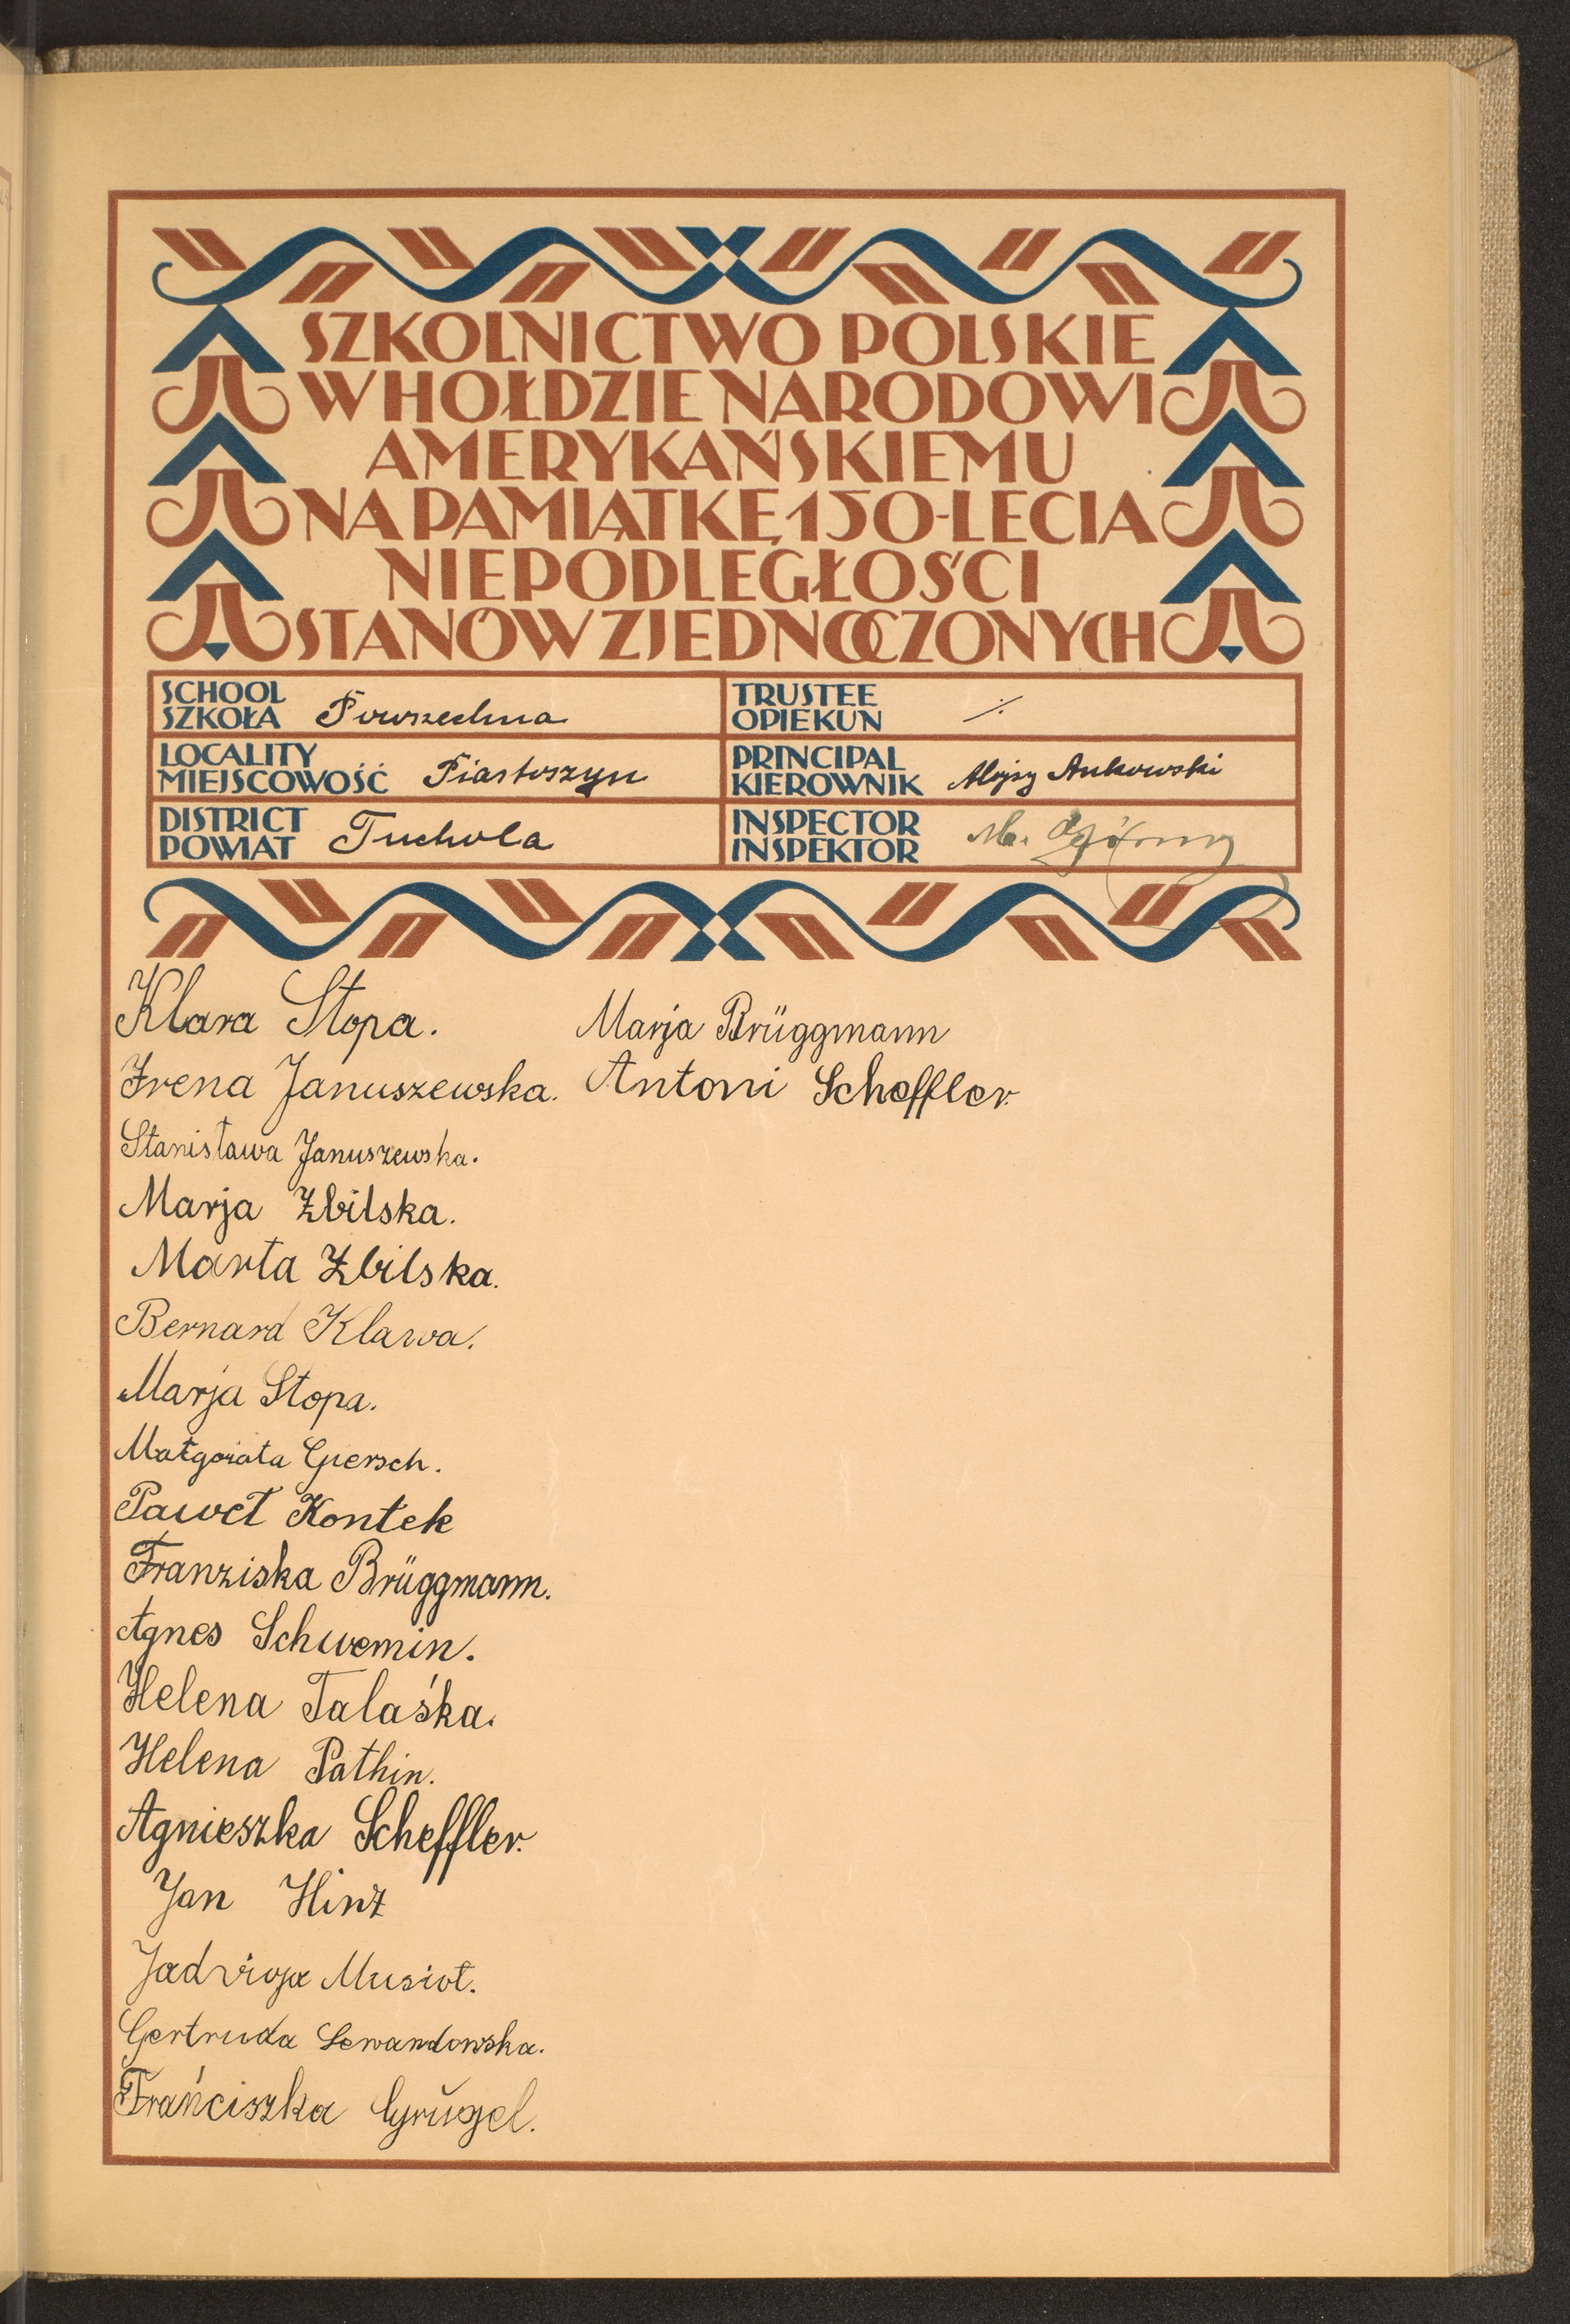 SZKOLNICTWO POLSKIE
W HOŁDZIE NARODOWI
AMERYKAŃSKIEMU
NA PAMIĄTKĘ 150-LECIA
NIEPODLEGŁOŚCI
STANÓW ZJEDNOCZONYCH
SCHOOL
SZKOŁA Powszechna
TRUSTEE
OPIEKUN ⁒
LOCALITY
MIEJSCOWOŚĆ Piastoszyn
PRINCIPAL
KIEROWNIK Alojzy Ankowski
DISTRICT
POWIAT Tuchola
INSPECTOR
INSPEKTOR M.
Klara Stopa.
Irena Januszewska.
Stanisława Januszewska.
Marja Zbilska.
Marta Zbilska.
Bernard Klawa.
Marja Stopa.
Małgorata Giersch.
Paweł Kontek
Franziska Brüggmann.
Agnes Schwemin.
Helena Talaśka.
Helena Pathin.
Agnieszka Scheffler.
Jan Hinz
Jadwiga Musioł.
Gertruda Lewandowska.
Frańciszka Grugel.
Marja Brüggmann
Antoni Scheffler.